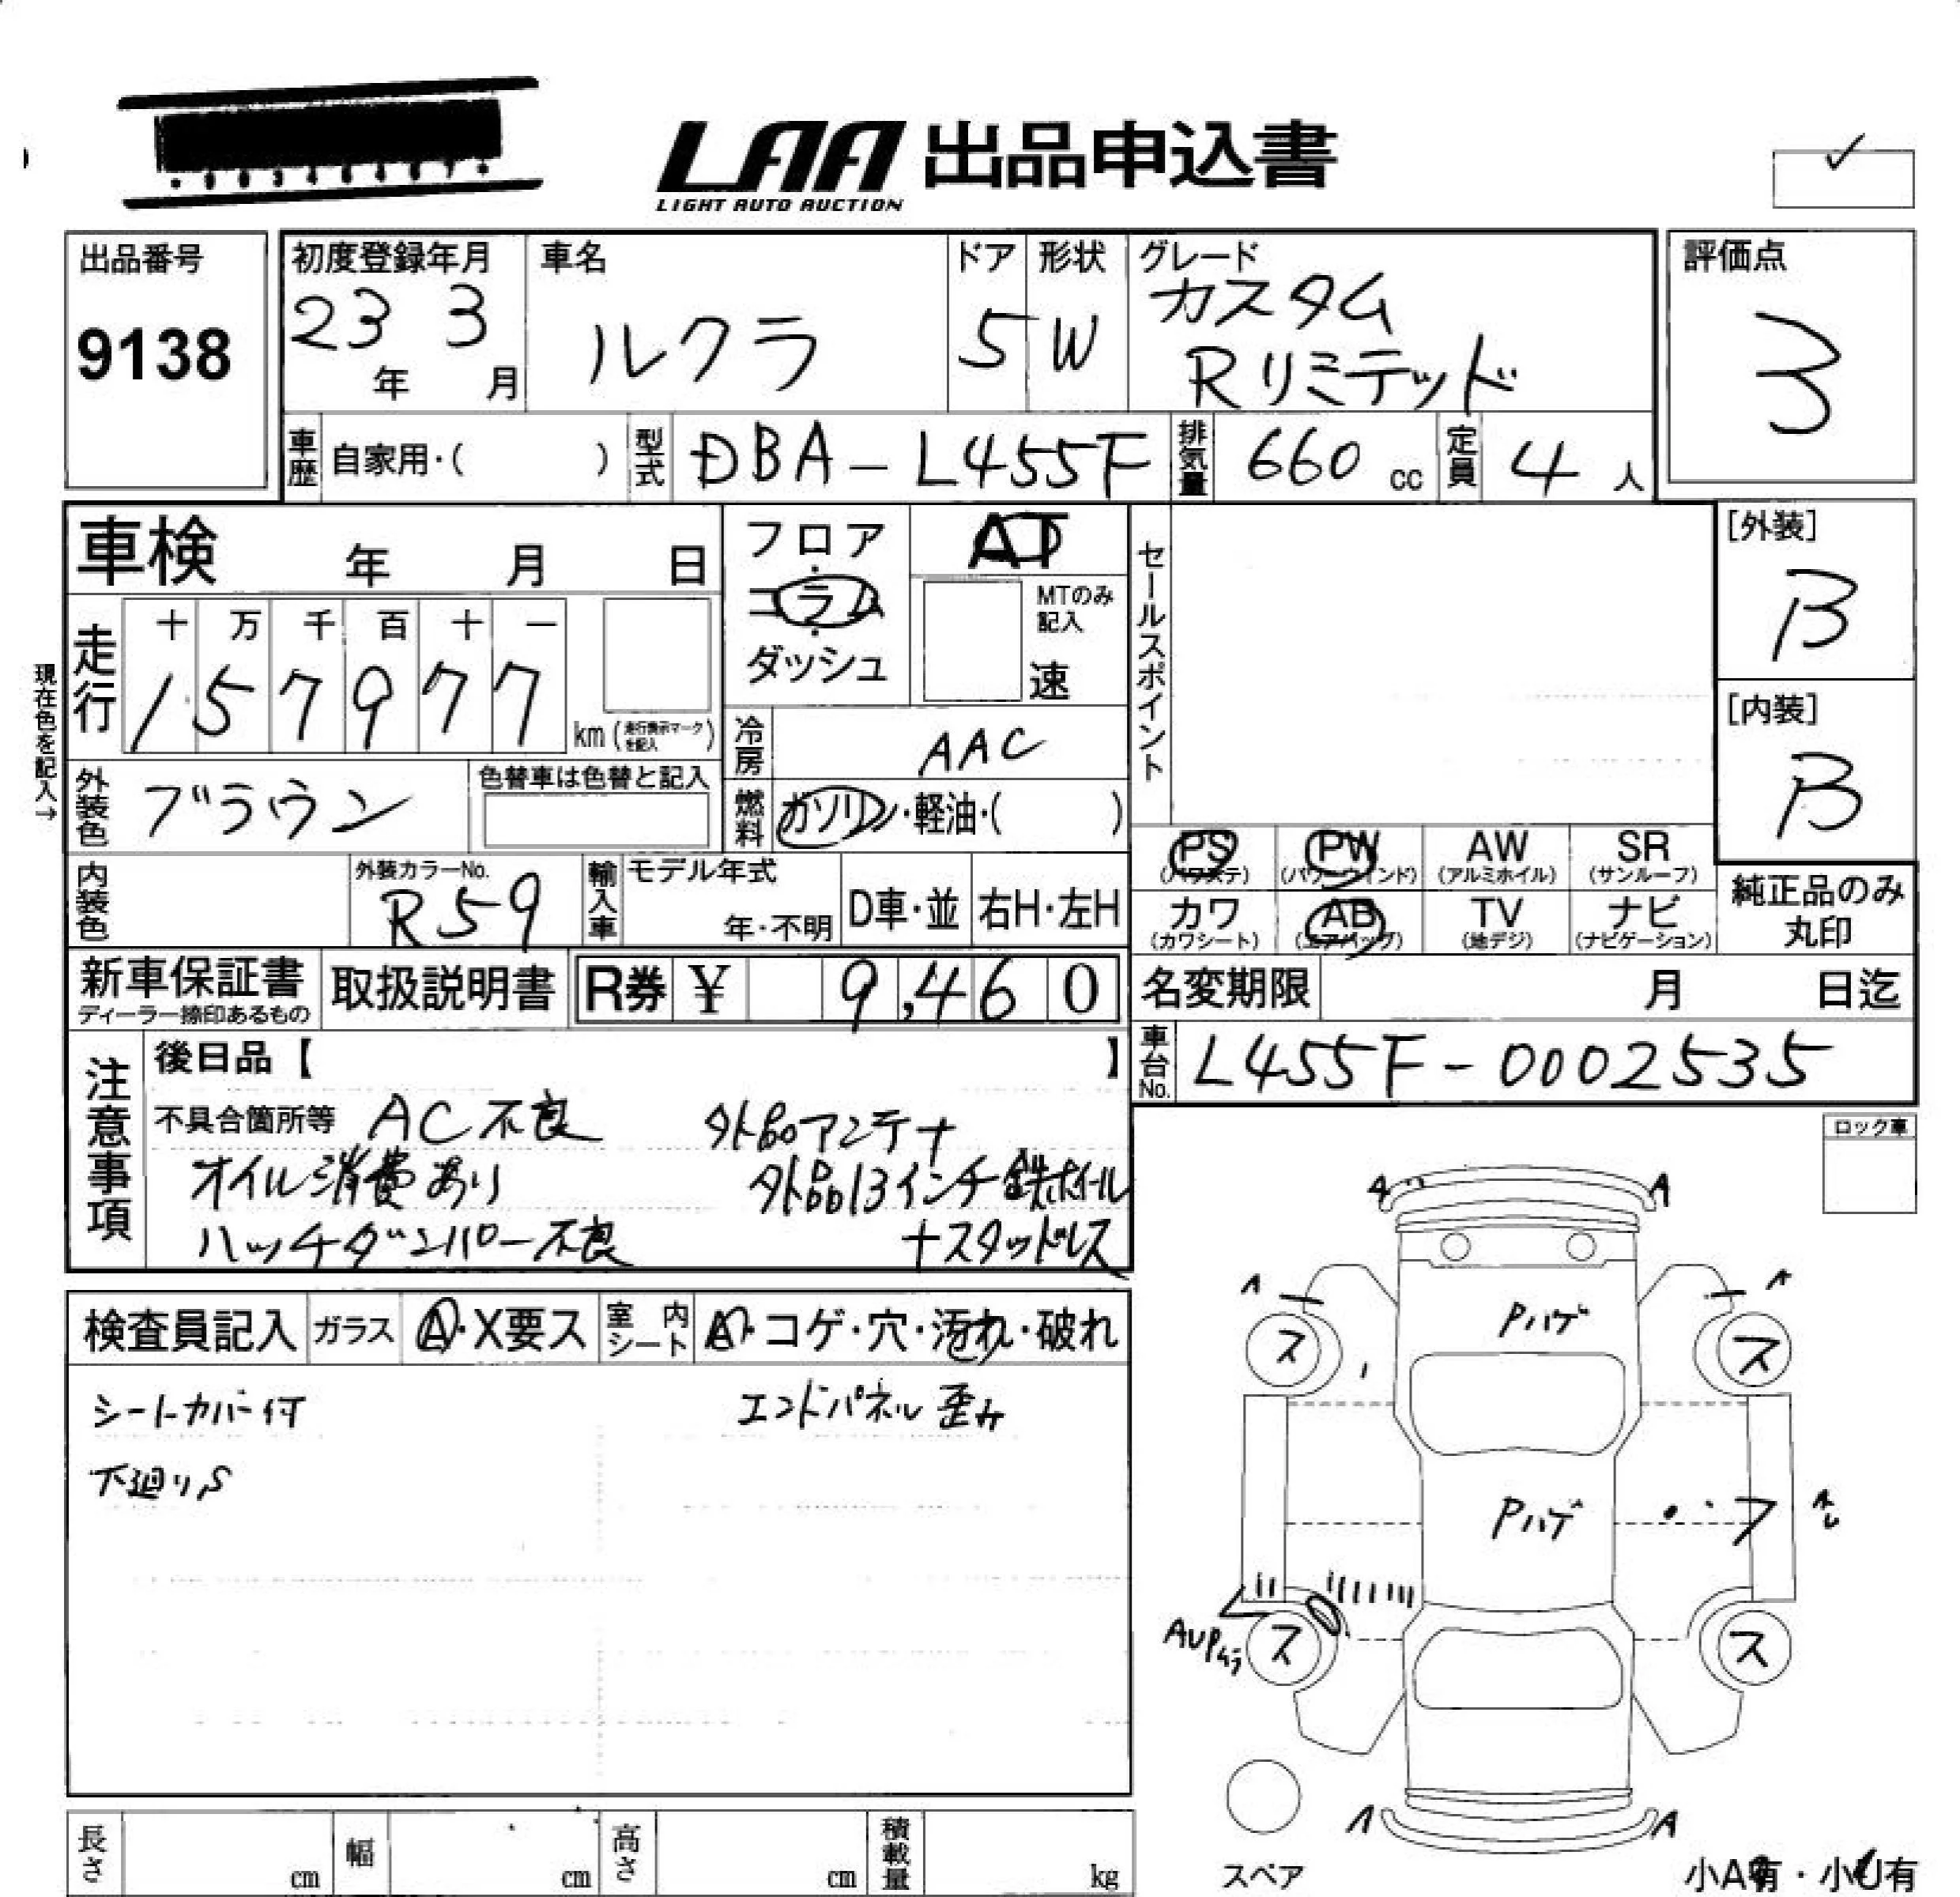 LAA 出品申込書
LIGHT AUTO AUCTION
出品番号
9138
初度登録年月
23年 3月
車名
ルクラ
ドア
5
形状
W
グレード
カスタム
Rリミテッド
評価点
3
車歴 自家用・( )
型式 DBA-L455F
排気量 660 cc
定員 4 人
車検 年 月 日
フロア・コラム・ダッシュ
AT
MTのみ記入
速
セールスポイント
[外装]
B
[内装]
B
現在色を記入→
走行 十 万 千 百 十 一
1 5 7 9 7 7 km (走行表示マークを記入)
冷房 AAC
外装色 ブラウン
色替車は色替と記入
燃料 ガソリン・軽油・( )
内装色
外装カラーNo.
R59
輸入車 モデル年式
年・不明 D車・並 右H・左H
PS (パワステ) PW (パワーウインド) AW (アルミホイル) SR (サンルーフ)
カワ (カワシート) AB (エアバッグ) TV (地デジ) ナビ (ナビゲーション)
純正品のみ
丸印
新車保証書
ディーラー捺印あるもの
取扱説明書
R券 ¥ 9,460
名変期限 月 日迄
車台No. L455F-0002535
注意事項
後日品【 】
不具合箇所等 AC不良 外品アンテナ
オイル消費あり 外品13インチ鉄ホイール
ハッチダンパー不良 +スタッドレス
ロック車
検査員記入 ガラス A・X要ス 室内シート A・コゲ・穴・汚れ・破れ
シートカバー付 エンドパネル歪み
下廻りS
A A
A A
Pハゲ
ス ス
Pハゲ
フ
AUPムラ
ス ス
A A
スペア
小A有・小U有
長さ cm 幅 cm 高さ cm 積載量 kg